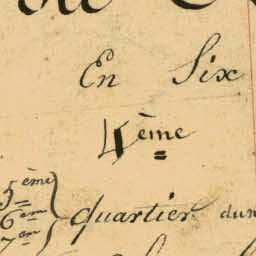 En Six
4ème
5ème
6em
7en
quartier dun